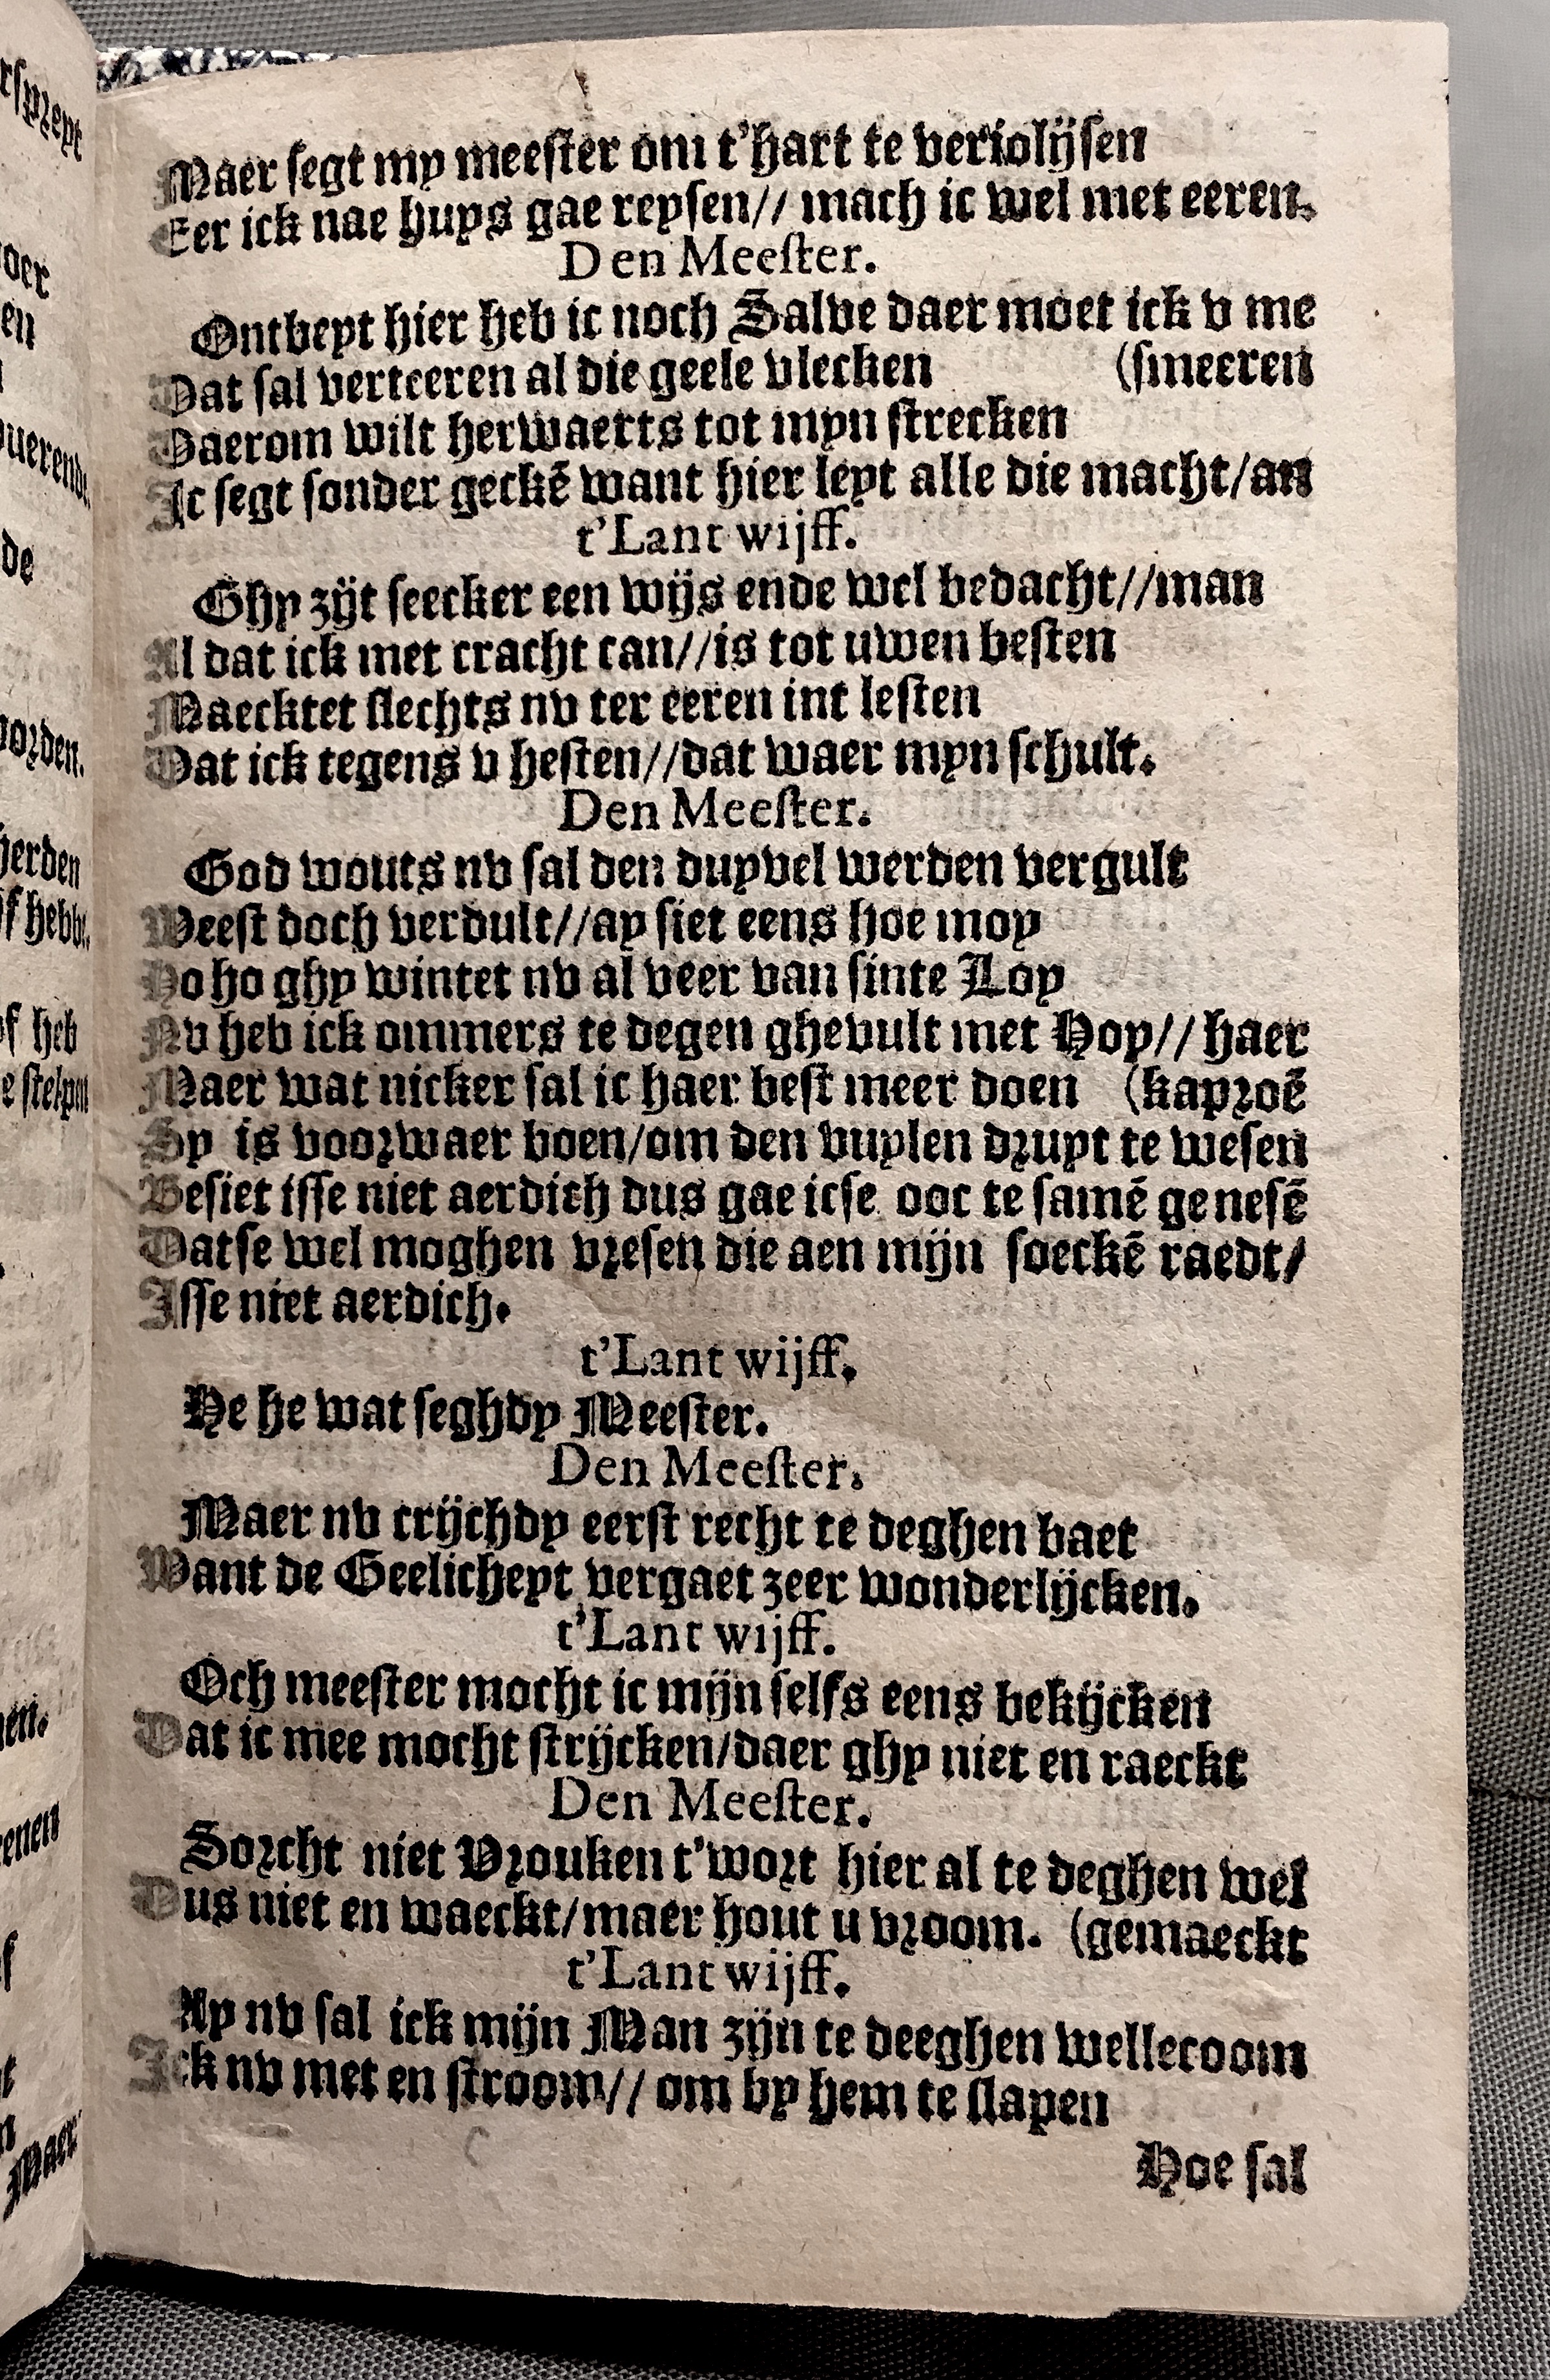 Maer segt my meester om t'hart te veriolijsen
Eer ick nae huys gae reysen// mach ic wel met eeren.
Den Meester.
Ontbeyt hier heb ic noch Salve daer moet ick v me
Dat sal verteeren al die geele vlecken (smeeren
Daerom wilt herwaerts tot myn strecken
Ic segt sonder geckē want hier leyt alle die macht/an
t'Lant wijff.
Ghy zijt seecker een wijs ende wel bedacht//man
Al dat ick met cracht can//is tot uwen besten
Maecktet slechts nv ter eeren int lesten
Dat ick tegens v hesten//dat waer myn schult.
Den Meester.
God wouts nv sal den duyvel werden vergult
Weest doch verdult//ay siet eens hoe moy
Ho ho ghy wintet nv al veer van sinte Loy
Nv heb ick ommers te degen ghevult met Hoy// haer
Maer wat nicker sal ic haer best meer doen (kaproē
Sy is voorwaer boen/om den vuylen druyt te wesen
Besiet isse niet aerdich dus gae icse ooc te samē genesē
Datse wel moghen vresen die aen mijn soeckē raedt/
Isse niet aerdich.
t'Lant wijff.
He he wat seghdy Meester.
Den Meester.
Maer nv crijchdy eerst recht te deghen baet
Want de Geelicheyt vergaet zeer wonderlijcken.
t'Lant wijff.
Och meester mocht ic mijn selfs eens bekijcken
Dat ic mee mocht strijcken/daer ghy niet en raeckt
Den Meester.
Sorcht niet Vrouken t'wort hier al te deghen wel
Dus niet en waeckt/maer hout u vroom. (gemaeckt
t'Lant wijff.
Ay nv sal ick mijn Man zijn te deeghen wellecoom
Ick nv met en stroom// om by hem te slapen
Hoe sal